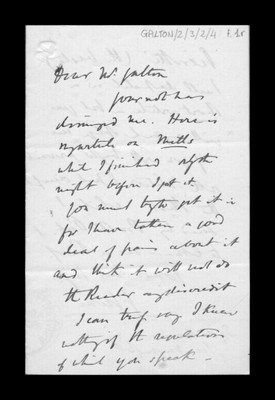 GALTON/2/3/2/4 f.1r
Dear Mr. Galton
Your note has
dismayed me. Here is
my article on Mills
which I finished
night before I got it.
You must try to get it in
for I have taken a good
deal of pains about it
and think it will not do
the Reader any discredit
I can truly say I knew
nothing of the regulations
of which you speak -